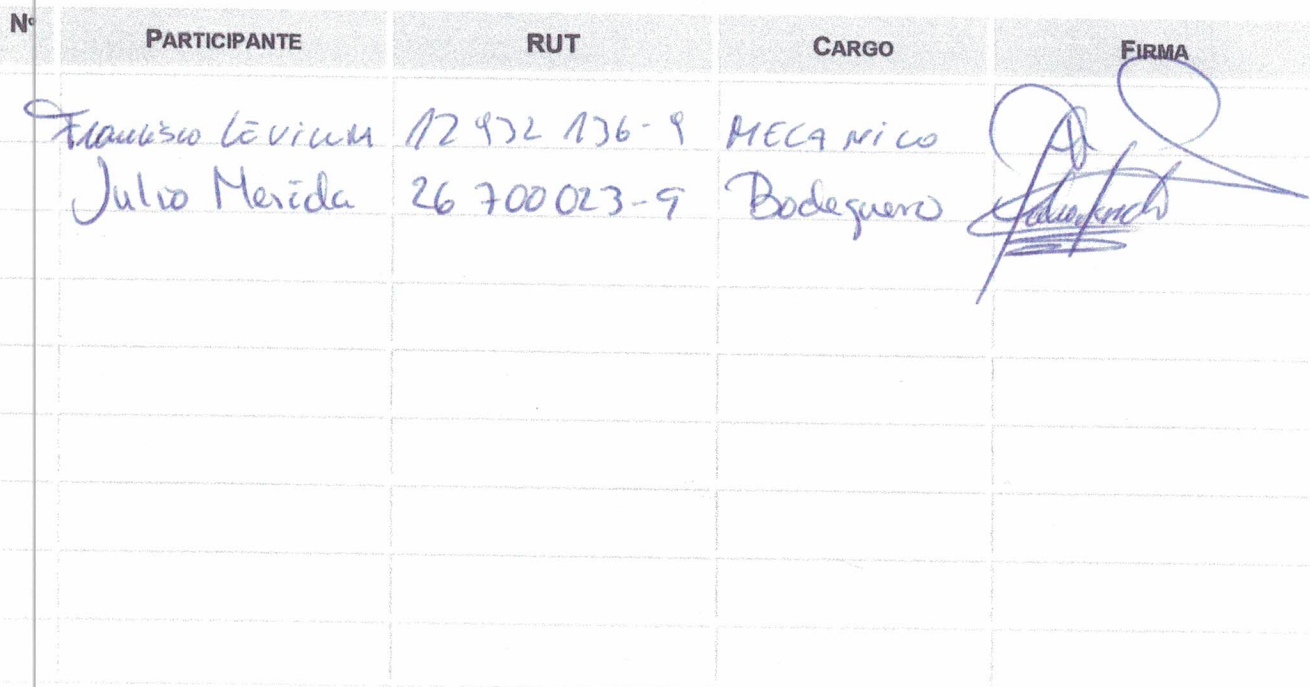 Nº PARTICIPANTE RUT CARGO FIRMA
Francisco 12 932 136-9 MECANICO
Julio Merida 26 700 023-9 Bodeguero